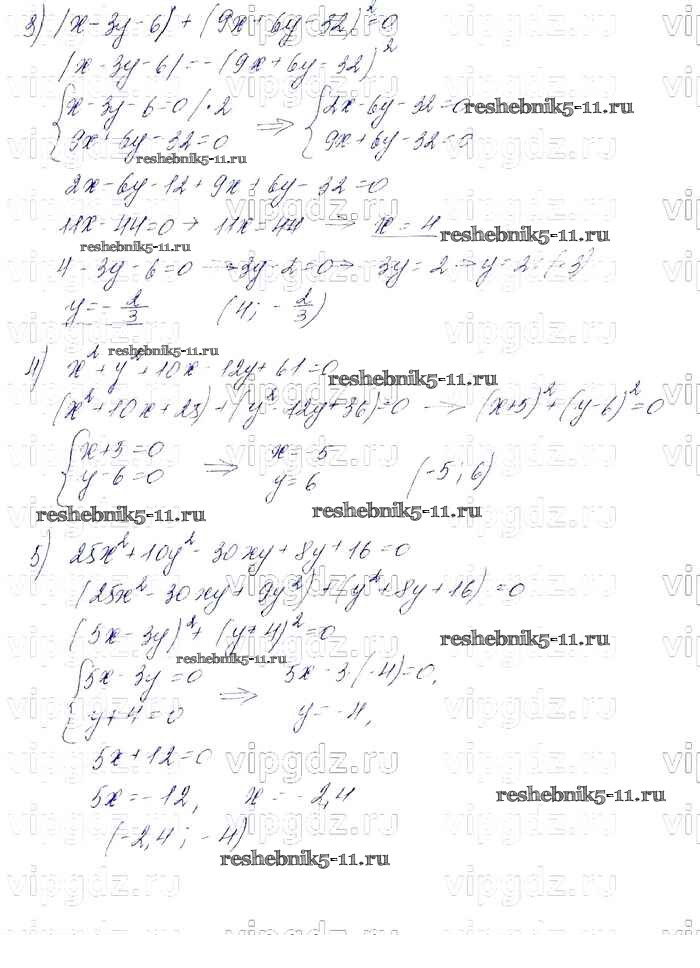 3) |x-3y-6|+(9x+6y-32)²=0
|x-3y-6|=-(9x+6y-32)²
{x-3y-6=0 |·2
9x+6y-32=0 => {2x-6y-32=0
9x+6y-32=0
2x-6y-12+9x+6y-32=0
11x-44=0 → 11x=44 → x=4
4-3y-6=0 → -3y-2=0 → -3y=2 → y=2:(-3)
y=-2/3 (4; -2/3)
4) x²+y²+10x-12y+61=0
(x²+10x+25)+(y²-12y+36)=0 → (x+5)²+(y-6)²=0
{x+5=0
y-6=0 => x=-5
y=6 (-5; 6)
5) 25x²+10y²-30xy+8y+16=0
(25x²-30xy+9y²)+(y²+8y+16)=0
(5x-3y)²+(y+4)²=0
{5x-3y=0
y+4=0 => 5x-3·(-4)=0,
y=-4,
5x+12=0
5x=-12, x=-2,4
(-2,4; -4)
reshebnik5-11.ru
vipgdz.ru